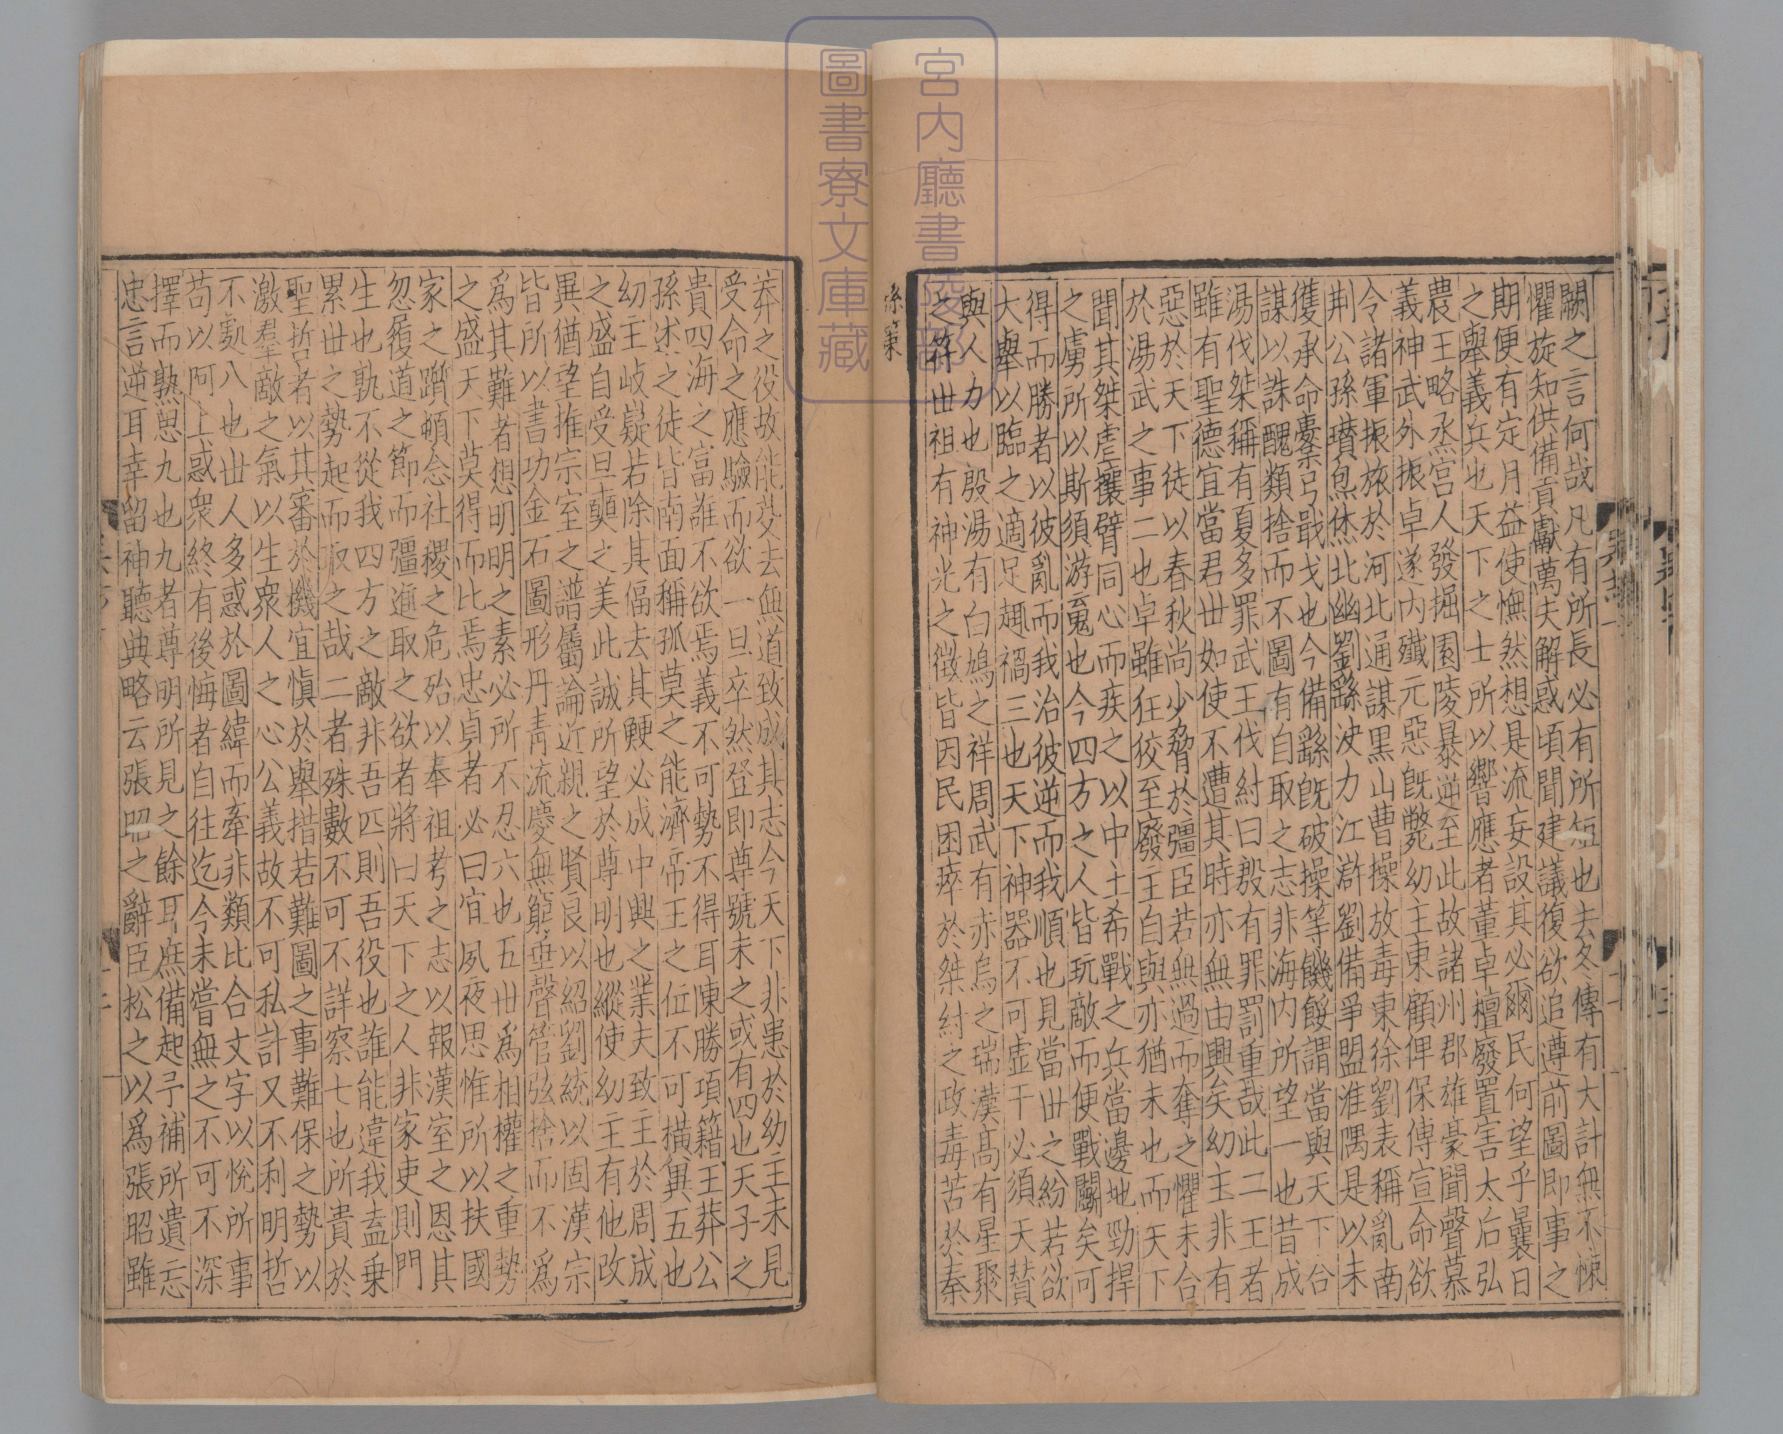 闕之言何哉凡有所長必有所短也去冬傳有大計無不悚
懼旋知供備貢獻萬夫解惑頃聞建議復欲追遵前圖即事之
期便有定月益使憮然想是流妄設其必爾民何望乎曩日
之舉義兵也天下之士所以響應者董卓擅廢置害太后弘
農王略烝宮人發掘園陵暴逆至此故諸州郡雄豪聞聲慕
義神武外振卓遂內殲元惡旣斃幼主東顧俾保傅宣命欲
令諸軍振旅於河北通謀黑山曹操放毒東徐劉表稱亂南
荆公孫瓚炰烋北幽劉繇決力江滸劉備爭盟淮隅是以未
獲承命櫜弓戢戈也今備繇旣破操等饑餒謂當與天下合
謀以誅醜類捨而不圖有自取之志非海內所望一也昔成
湯伐桀稱有夏多罪武王伐紂曰殷有罪罰重哉此二王者
雖有聖德宜當君世如使不遭其時亦無由興矣幼主非有
惡於天下徒以春秋尚少脅於彊臣若無過而奪之懼未合
於湯武之事二也卓雖狂狡至廢主自與亦猶未也而天下
聞其桀虐攘臂同心而疾之以中土希戰之兵當邊地勁捍
之虜所以斯須游䰟也今四方之人皆玩敵而便戰鬭矣可
得而勝者以彼亂而我治彼逆而我順也見當世之紛若欲
大舉以臨之適足趣禍三也天下神器不可虛干必須天贊
與人力也殷湯有白鳩之祥周武有赤烏之瑞漢高有星聚
之符世祖有神光之徵皆因民困瘁於桀紂之政毒苦於秦
孫策
宮內廳書陵部
圖書寮文庫藏
莽之役故能芟去無道致成其志今天下非患於幼主未見
受命之應驗而欲一旦卒然登即尊號未之或有四也天子之
貴四海之富誰不欲焉義不可勢不得耳陳勝項籍王莽公
孫述之徒皆南面稱孤莫之能濟帝王之位不可橫兾五也
幼主岐嶷若除其偪去其鯁必成中興之業夫致主於周成
之盛自受旦奭之美此誠所望於尊明也縱使幼主有他改
異猶望推宗室之譜屬論近親之賢良以紹劉統以固漢宗
皆所以書功金石圖形丹靑流慶無窮垂聲管弦捨而不爲
爲其難者想明明之素必所不忍六也五世爲相權之重勢
之盛天下莫得而比焉忠貞者必曰宜夙夜思惟所以扶國
家之躓頓念社稷之危殆以奉祖考之志以報漢室之恩其
忽履道之節而彊進取之欲者將曰天下之人非家吏則門
生也孰不從我四方之敵非吾匹則吾役也誰能違我盍乘
累世之勢起而取之哉二者殊數不可不詳察七也所貴於
聖哲者以其審於機宜愼於舉措若難圖之事難保之勢以
激羣敵之氣以生衆人之心公義故不可私計又不利明哲
不處八也世人多惑於圖緯而牽非類比合文字以悅所事
苟以阿上惑衆終有後悔者自往迄今未嘗無之不可不深
擇而熟思九也九者尊明所見之餘耳庶備起予補所遺忘
忠言逆耳幸留神聽典略云張昭之辭臣松之以爲張昭雖